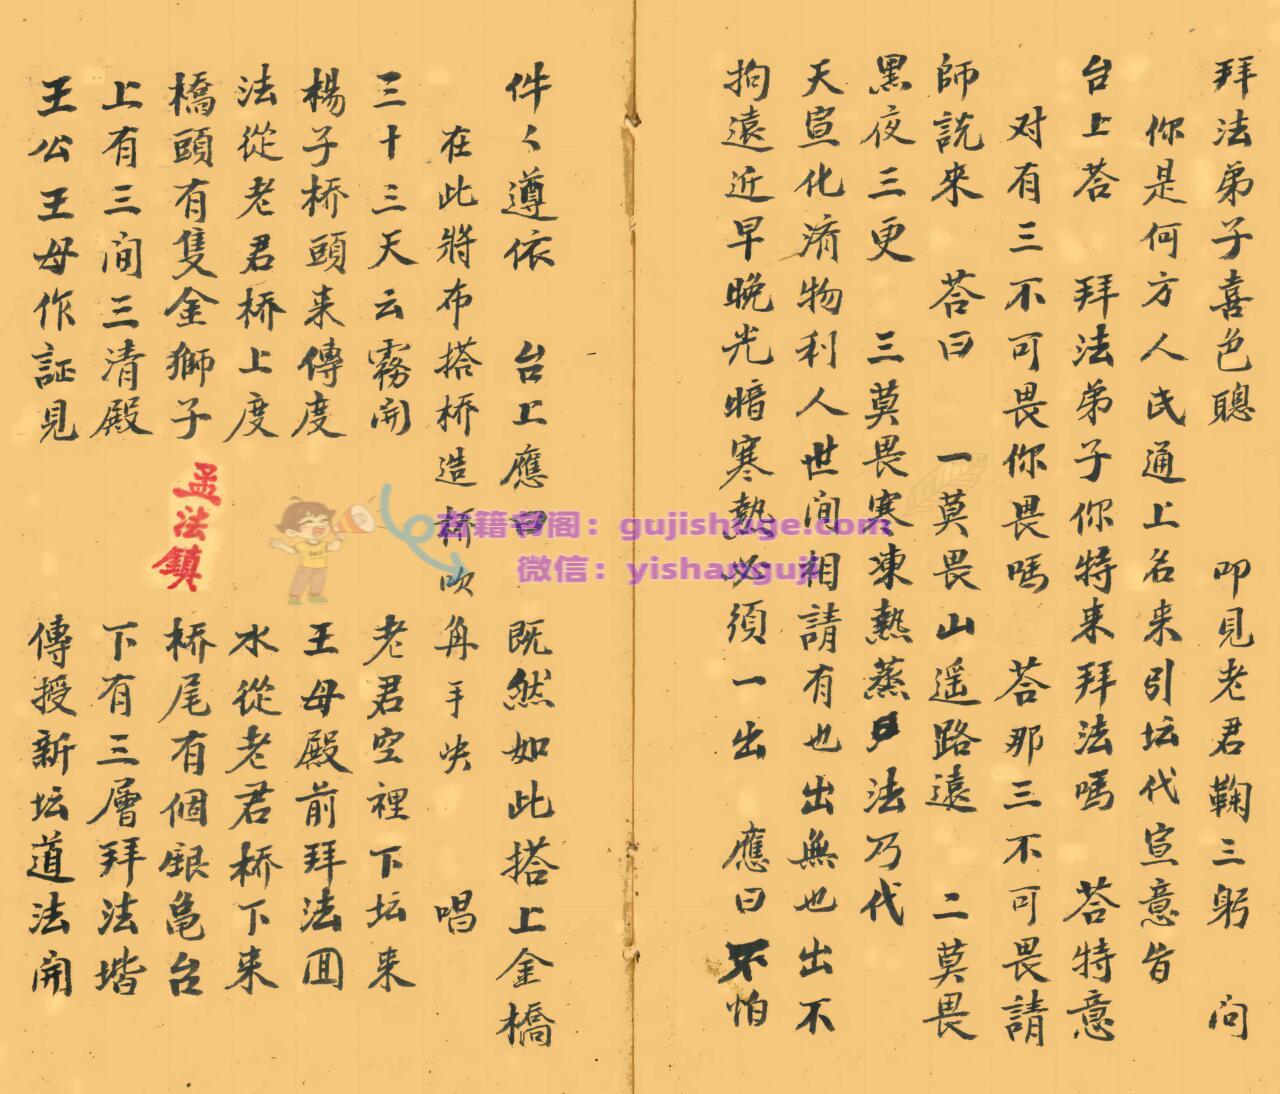 拜法弟子喜色聰　叩見老君鞠三躬　问
你是何方人民通上名来引坛代宣意旨
台上荅　拜法弟子你特来拜法嗎　荅特意
对有三不可畏你畏嗎　荅那三不可畏請
師説來　荅曰　一莫畏山遥路遠　二莫畏
黑夜三更　三莫畏寒凍熱蒸　法乃代
天宣化濟物利人世间相請有也出無也出不
拘遠近早晚光暗寒熱必須一出　應曰不怕
件々遵依　台上應曰　既然如此搭上金橋
在此將布搭桥造桥吹角手決　唱
三十三天云霧开　老君空裡下坛来
楊子桥頭来傳度　王母殿前拜法囬
法從老君桥上度　水從老君桥下来
橋頭有隻金獅子　桥尾有個銀亀台
上有三间三清殿　下有三層拜法堦
王公王母作証見　傳授新坛道法開
孟法鎮
古籍书阁：gujishuge.com
微信：yishanguji